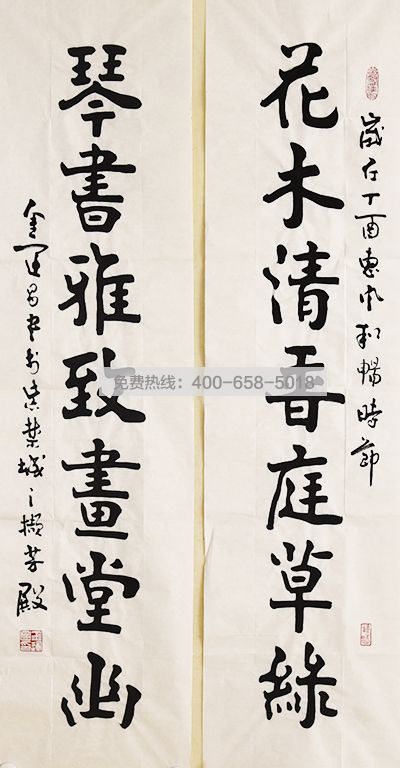 歲在丁酉惠風和暢時節
花木清香庭草綠
琴書雅致畫堂幽
金運昌書於紫禁城之擷芳殿
免费热线：400-658-5018